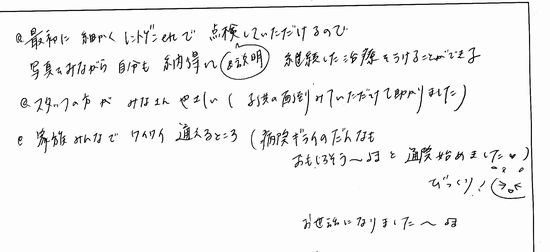 @最初に細かくレントゲンetcで点検していただけるので
写真みながら自分も納得し(説明)継続した治療をうけることができる
@スタッフの方がみなさんやさしい(子供の面倒みていただけて助かりました)
@家族みんなでワイワイ通えるところ(病院ギライのだんなも
おもしろそう〜♪と通院始めました♥)
びっくり!
お世話になりました〜♪